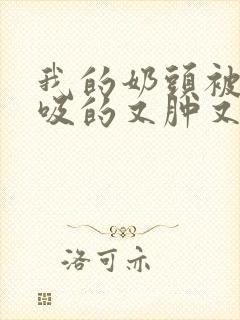 我的奶頭被
吸的又肿又
洛可亦